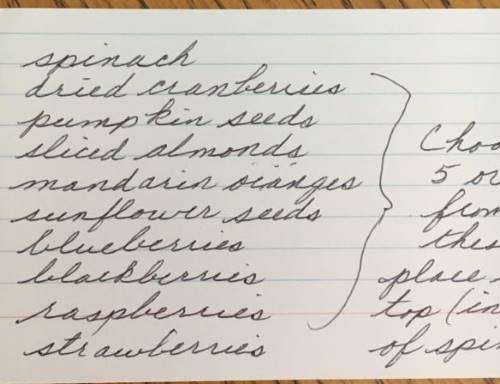 spinach
dried cranberries
pumpkin seeds
sliced almonds
mandarin oranges
sunflower seeds
blueberries
blackberries
raspberries
strawberries
5
from
place
top (in
of